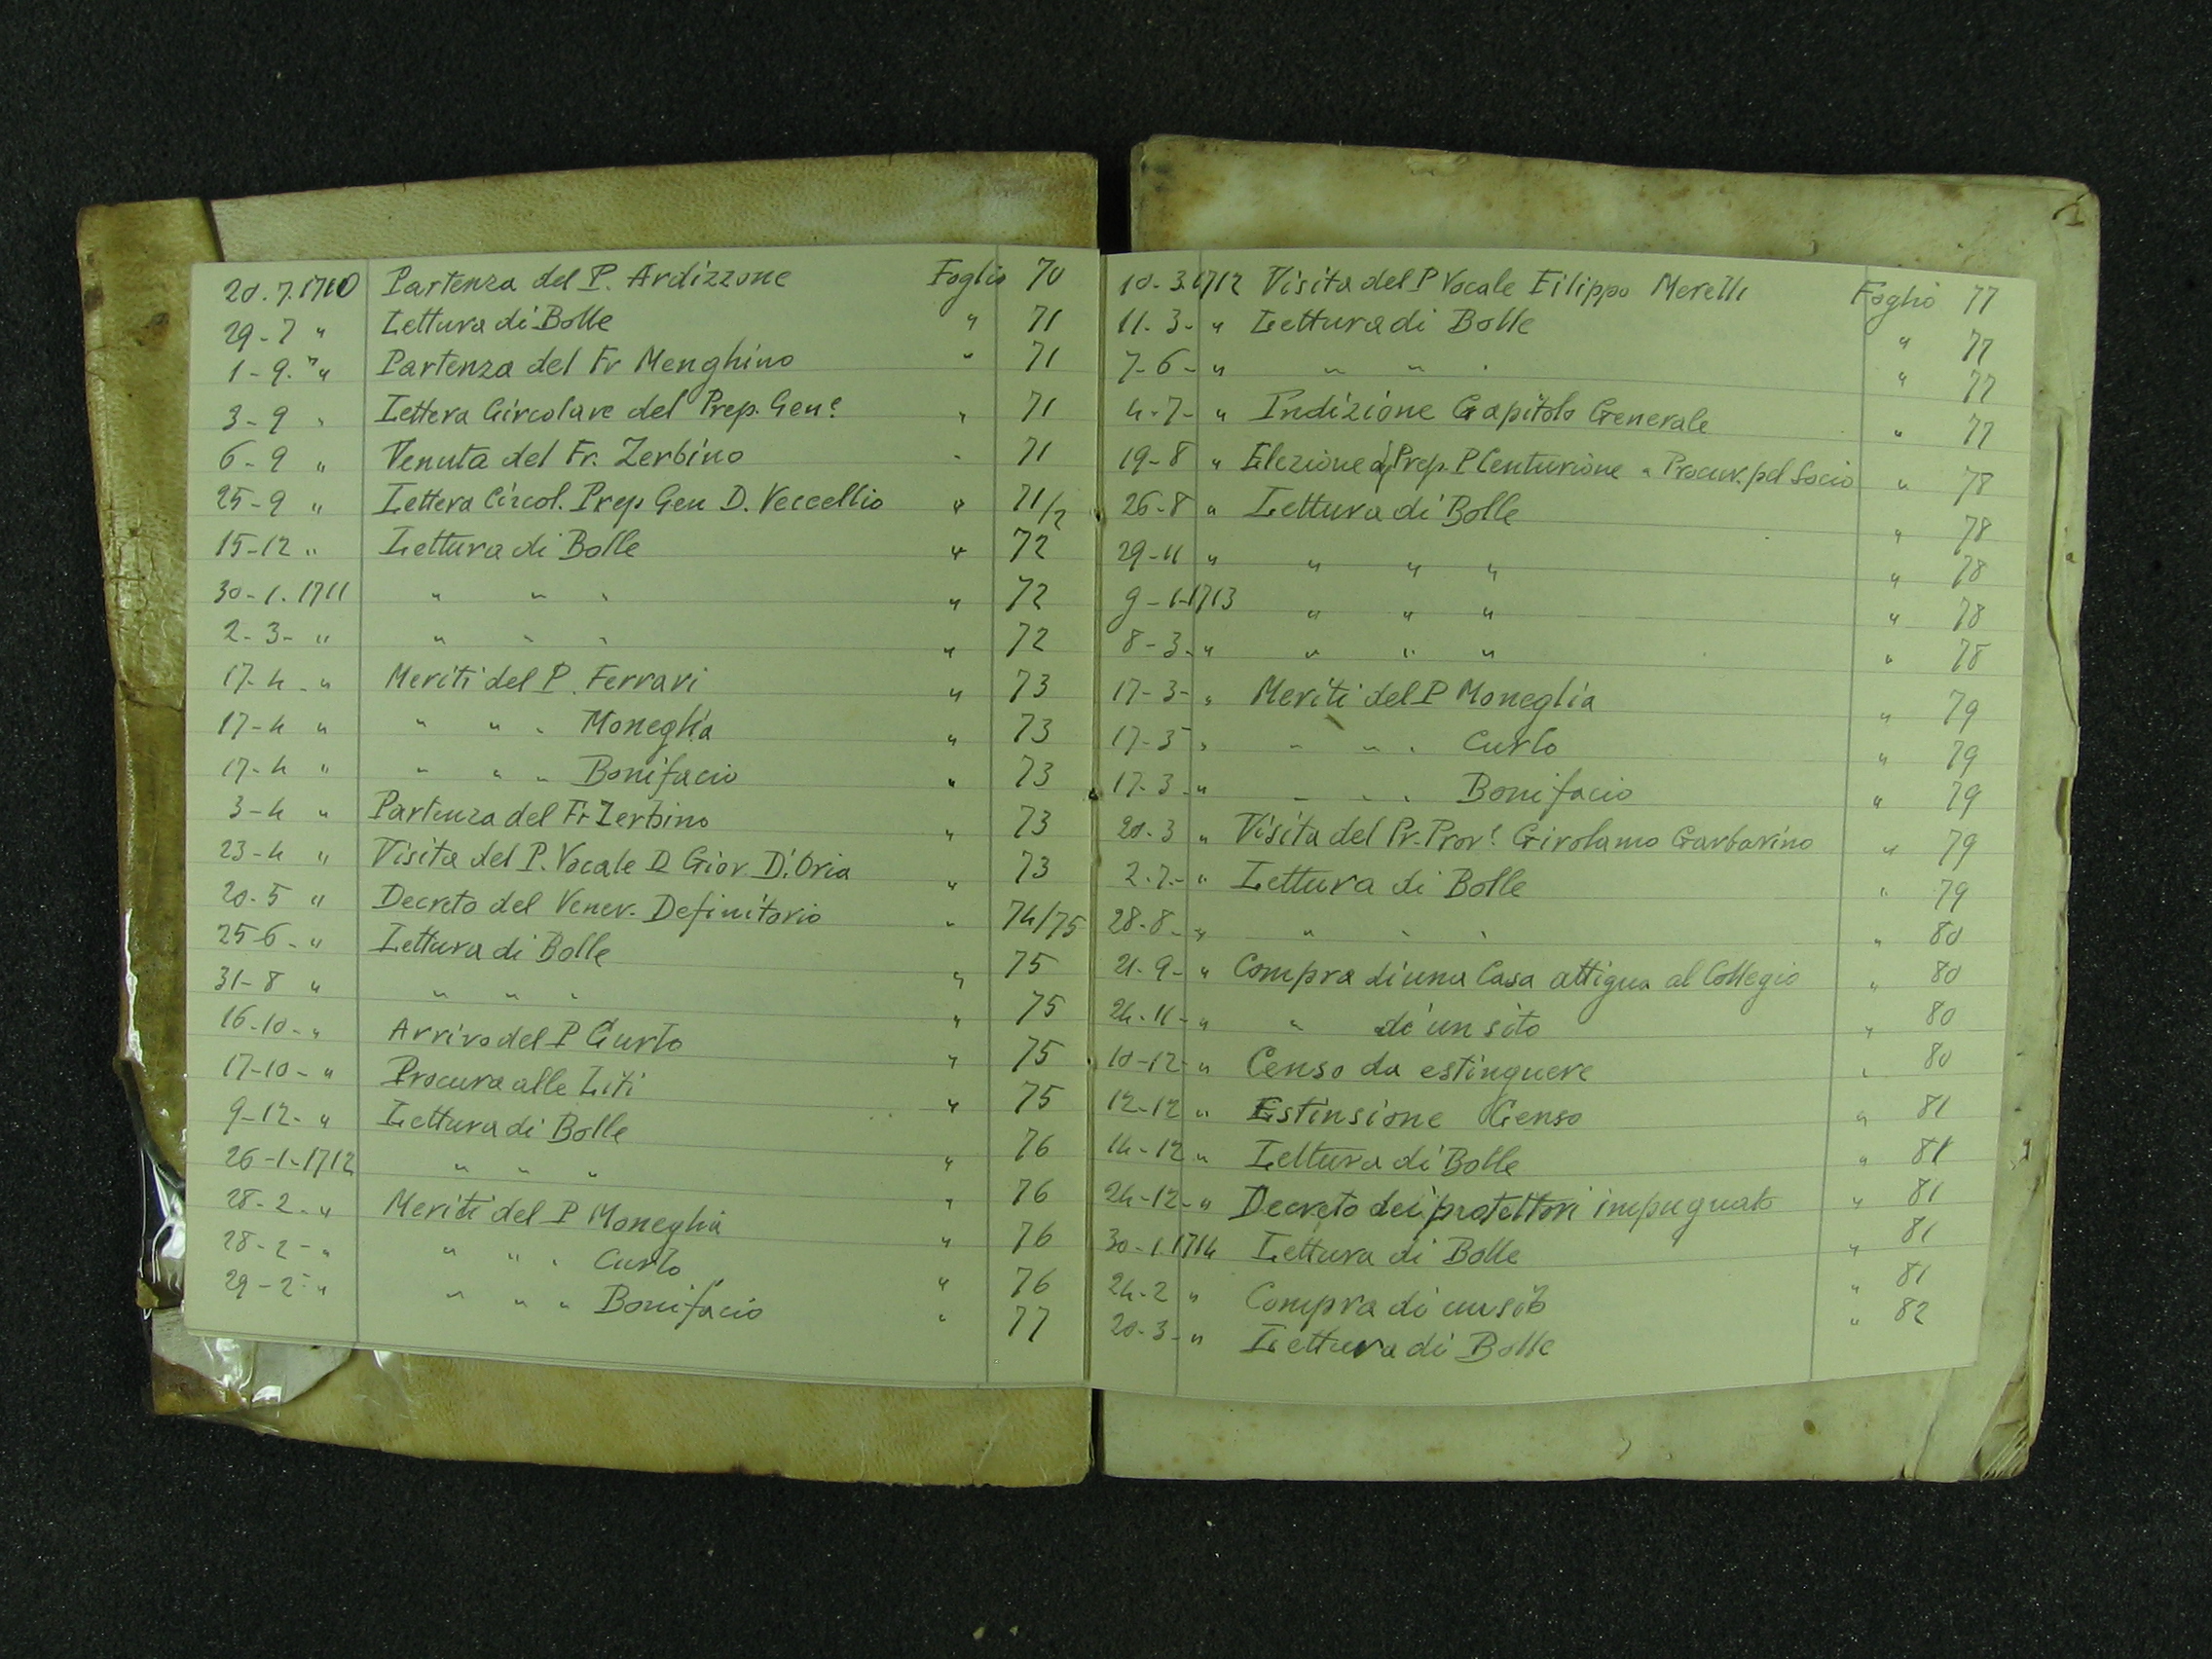 20.7.1710 Partenza del P. Ardizzone Foglio 70
29-7 " Lettura di Bolle " 71
1-9. " Partenza del Fr Menghino " 71
3-9 " Lettera Circolare del Prep. Gen.e " 71
6-9 " Venuta del Fr. Zerbino " 71
25-9 " Lettera Circol. Prep Gen D. Veccellio " 71/2
15-12 " Lettura di Bolle " 72
30-1.1711 " " " " 72
2-3- " " " " " 72
17-4 - " Meriti del P. Ferrari " 73
17-4 " " " " Moneglia " 73
17-4 " " " " Bonifacio " 73
3-4 " Partenza del Fr Zerbino " 73
23-4 " Visita del P. Vocale D Giov. D'Oria " 73
20.5 " Decreto del Vener. Definitorio " 74/75
25-6 - " Lettura di Bolle " 75
31-8 " " " " " 75
16-10- " Arrivo del P Curlo " 75
17-10- " Procura alle Liti " 75
9-12- " Lettura di Bolle " 76
26-1-1712 " " " " 76
28-2- " Meriti del P Moneglia " 76
28-2- " " " " Curlo " 76
29-2- " " " " Bonifacio " 77
1
10-3.1712 Visita del P Vocale Filippo Merelli Foglio 77
11-3- " Lettura di Bolle " 77
7-6- " " " " " 77
4-7- " Indizione Capitolo Generale " 77
19-8 " Elezione di Prep. P Centurione " Procur. pel Socio " 78
26-8 " Lettura di Bolle " 78
29-11 " " " " " 78
9-1-1713 " " " " 78
8-3- " " " " " 78
17-3- " Meriti del P Moneglia " 79
17-3 " " " " Curlo " 79
17-3- " " " " Bonifacio " 79
20-3 " Visita del Pr. Prov.e Girolamo Garbarino " 79
2-7- " Lettura di Bolle " 79
28-8- " " " " " 80
21-9- " Compra di una Casa attigua al Collegio " 80
24-11- " " di un sito " 80
10-12- " Censo da estinguere " 80
12-12 " Estinsione Censo " 81
14-12 " Lettura di Bolle " 81
24-12- " Decreto dei protettori impugnato " 81
30-1.1714 Lettura di Bolle " 81
24-2 " Compra di un sito " 81
20-3- " Lettura di Bolle " 82